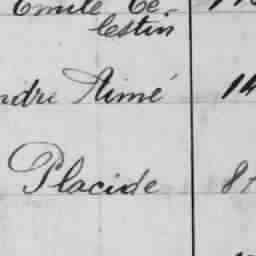 Emile Cé-
lestin
ndre Aimé 14
Placide 8